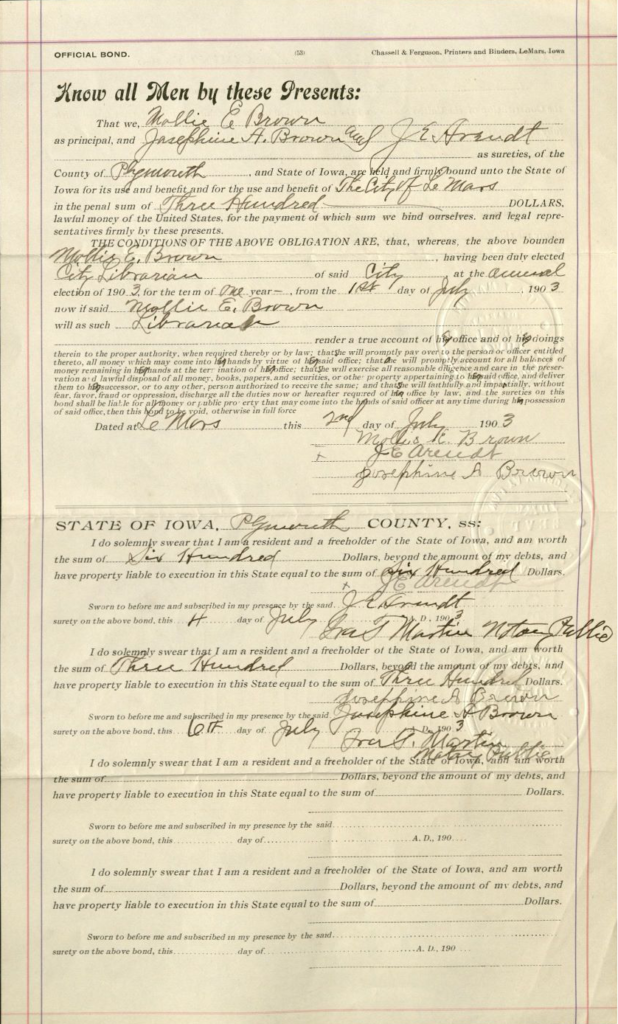 OFFICIAL BOND. (53) Chassell & Ferguson, Printers and Binders, LeMars, Iowa
Know all Men by these Presents:
That we, Mollie E Brown
as principal, and Josephine A. Brown and J E Arendt
as sureties, of the
County of Plymouth, and State of Iowa, are held and firmly bound unto the State of
Iowa for its use and benefit and for the use and benefit of The City of Le Mars
in the penal sum of Three Hundred DOLLARS,
lawful money of the United States, for the payment of which sum we bind ourselves, and legal repre-
sentatives firmly by these presents.
THE CONDITIONS OF THE ABOVE OBLIGATION ARE, that, whereas, the above bounden
Mollie E. Brown, having been duly elected
City Librarian of said City at the annual
election of 1903, for the term of One year—, from the 1st day of July, 1903
now if said Mollie E. Brown
will as such Librarian
render a true account of her office and of her doings
therein to the proper authority, when required thereby or by law; that she will promptly pay over to the person or officer entitled
thereto, all money which may come into her hands by virtue of her said office; that she will promptly account for all balances of
money remaining in her hands at the termination of her office; that she will exercise all reasonable diligence and care in the preser-
vation and lawful disposal of all money, books, papers, securities, or other property appertaining to her said office, and deliver
them to her successor, or to any other, person authorized to receive the same; and that she will faithfully and impartially, without
fear, favor, fraud or oppression, discharge all the duties now or hereafter required of her office by law, and the sureties on this
bond shall be liable for all money or public property that may come into the hands of said officer at any time during her possession
of said office, then this bond to be void, otherwise in full force
Dated at Le Mars this 2nd day of July 1903
Mollie E. Brown
x J E Arendt
Josephine A Brown
STATE OF IOWA, Plymouth COUNTY, ss:
I do solemnly swear that I am a resident and a freeholder of the State of Iowa, and am worth
the sum of Six Hundred Dollars, beyond the amount of my debts, and
have property liable to execution in this State equal to the sum of Six Hundred Dollars.
x J E Arendt
Sworn to before me and subscribed in my presence by the said J E Arendt
surety on the above bond, this 4 day of July A. D., 1903
Ira T Martin Notary Public
I do solemnly swear that I am a resident and a freeholder of the State of Iowa, and am worth
the sum of Three Hundred Dollars, beyond the amount of my debts, and
have property liable to execution in this State equal to the sum of Three Hundred Dollars.
Josephine A Brown
Sworn to before me and subscribed in my presence by the said Josephine A Brown
surety on the above bond, this 6th day of July A. D., 1903
Ira T. Martin
Notary Public
I do solemnly swear that I am a resident and a freeholder of the State of Iowa, and am worth
the sum of Dollars, beyond the amount of my debts, and
have property liable to execution in this State equal to the sum of Dollars.
Sworn to before me and subscribed in my presence by the said
surety on the above bond, this day of A. D., 190
I do solemnly swear that I am a resident and a freeholder of the State of Iowa, and am worth
the sum of Dollars, beyond the amount of my debts, and
have property liable to execution in this State equal to the sum of Dollars.
Sworn to before me and subscribed in my presence by the said
surety on the above bond, this day of A. D., 190